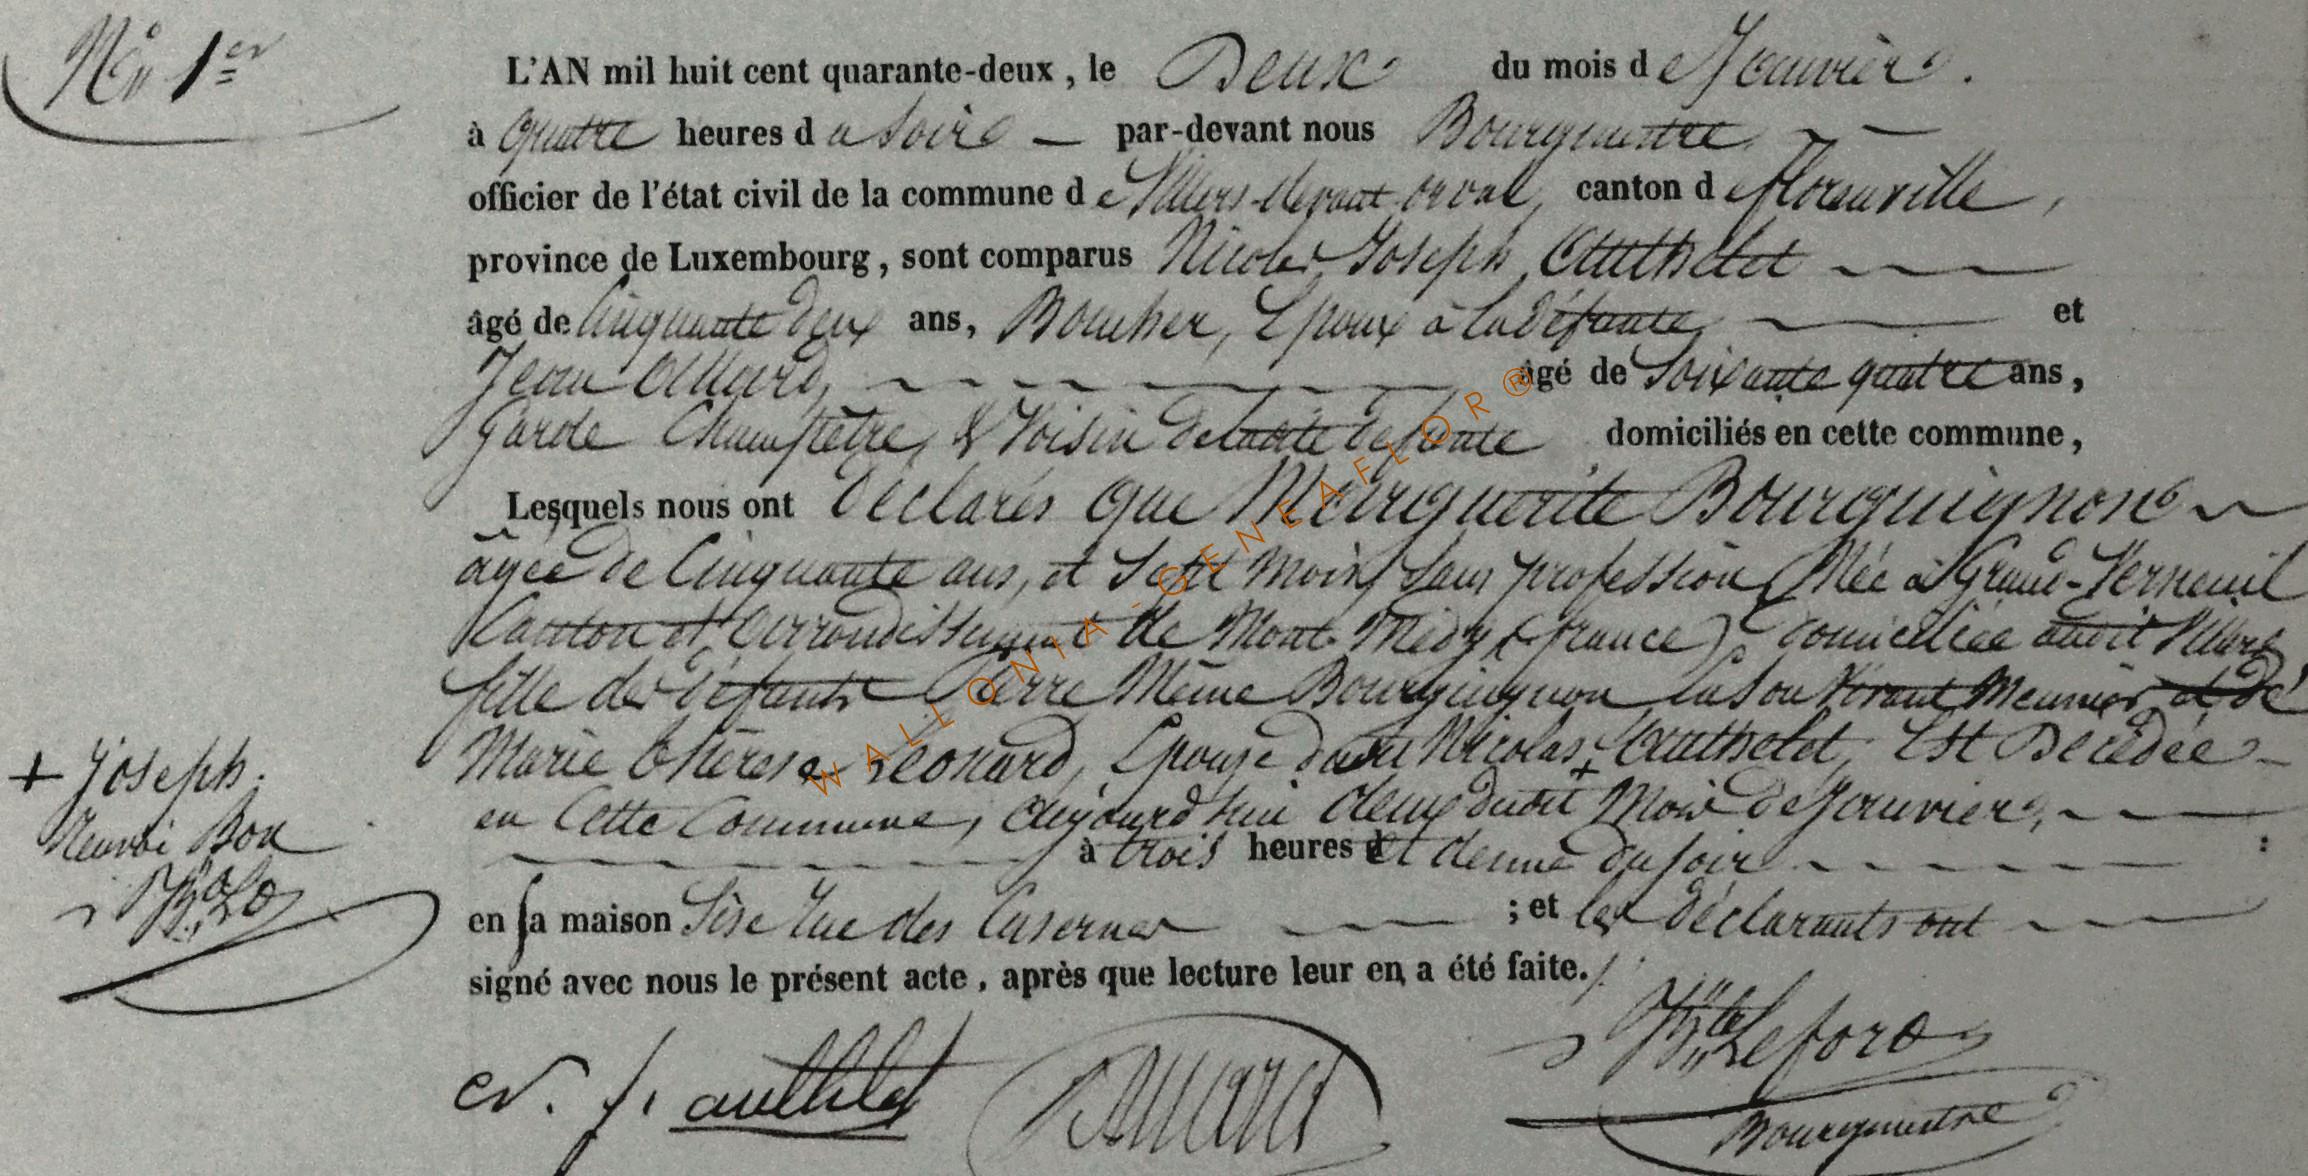 N° 1er
L'AN mil huit cent quarante-deux, le Deux du mois de Janvier.
à quatre heures du Soir — par-devant nous Bourgmestre
officier de l'état civil de la commune de Villers-devant-orval, canton de florenville,
province de Luxembourg, sont comparus Nicolas Joseph Authelet
âgé de Cinquante deux ans, Boucher, Epoux à la défunte, et
Jean Allard, âgé de Soixante quatre ans,
garde Champêtre, & Voisin de ladite defunte domiciliés en cette commune,
Lesquels nous ont déclarés que Marguerite Bourguignon
âgée de Cinquante ans, et Sept Mois, Sans profession, Née à Grand-Verneuil
Canton et arrondissement de Mont-Médy (france), domiciliée audit Villers
fille des défunts Pierre Bourguignon en son vivant Meunier, et de
Marie thérèse Leonard, Epouse dudit Nicolas + Authelet, Est Décédée
en Cette Commune, aujourd'hui deux dudit Mois de Janvier,
à trois heures et demie du soir
en sa maison Sise rue des Casernes ; et les déclarants ont
signé avec nous le présent acte, après que lecture leur en a été faite./.
+ Joseph.
Renvoi Bon
N. J. authelet
Allard
Lefort
Bourgmestre
WALLONIA-GENEAFLOR®